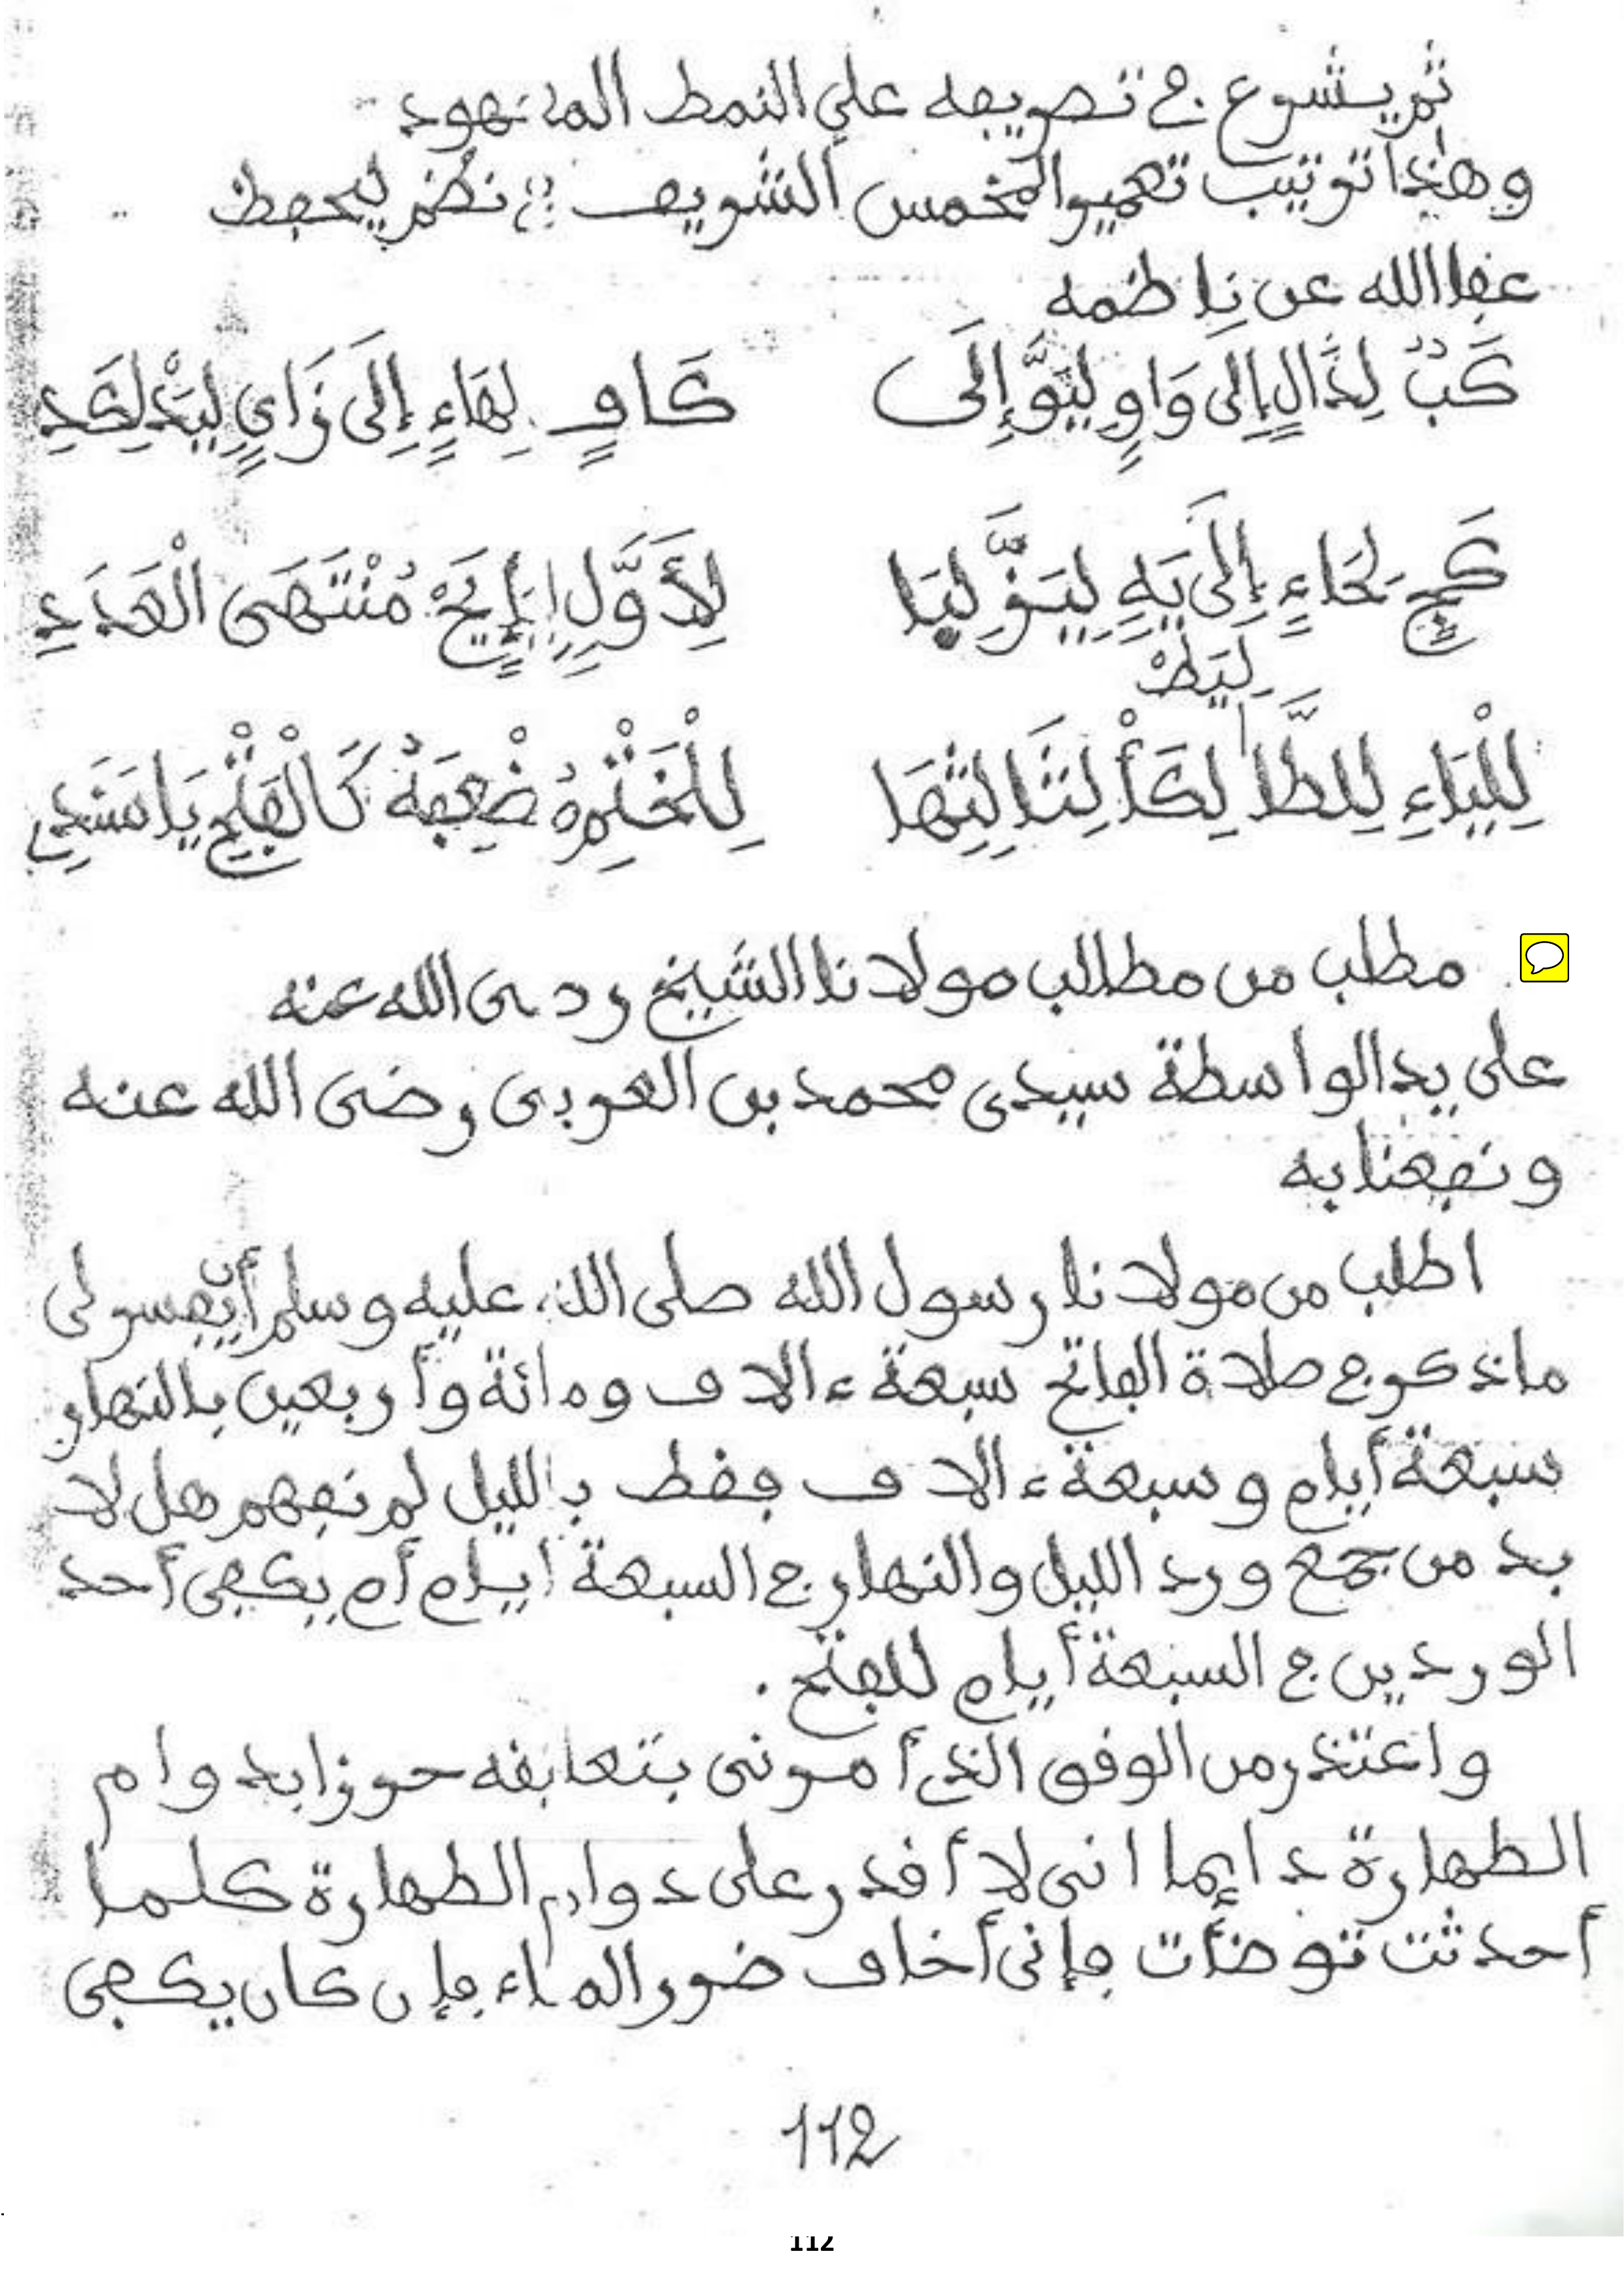 ثم يشرع في تصريفه على النمط المعهود
وهذا ترتيب تعمير المخمس الشريف نظم ليحفظ
عفا الله عن ناظمه
كَبٌ لِدَالٍ إِلَى وَاوٍ لِيَوَّ إِلَى كَافٍ لِهَاءٍ إِلَى زَايٍ لِيَدْ لِكَدِ
كَجٍ لِحَاءٍ إِلَى يَهٍ لِيَزٍ لِيَا لِأَوَّلٍ يَحْ مُنْتَهَى الْعَدَدِ
لِيَطْ
لِلْيَاءِ لِلطَّا لِكَأْ لِثَالِثِهَا لِلْخَتْمِ ضِعْفُهُ كَالْفَلْجِ يَا سَنَدِي
مطلب من مطالب مولانا الشيخ رضى الله عنه
على يد الواسطة سيدى محمد بن العربى رضى الله عنه
ونفعنا به
اطلب من مولانا رسول الله صلى الله عليه وسلم أن يفسر لى
ما ذكر في صلاة الفاتح سبعة ءالاف ومائة وأربعين بالنهار
سبعة أيام وسبعة ءالاف فقط بالليل لم نفهم هل لا
بد من جمع ورد الليل والنهار في السبعة ايام أم يكفى أحد
الوردين في السبعة أيام للفتح.
واعتذر من الوفق الذى أمرنى بتعليقه حرزا بدوام
الطهارة دايما انى لا أقدر على دوام الطهارة كلما
أحدثت توضأت فإنى أخاف ضرر الماء فإن كان يكفى
112
112